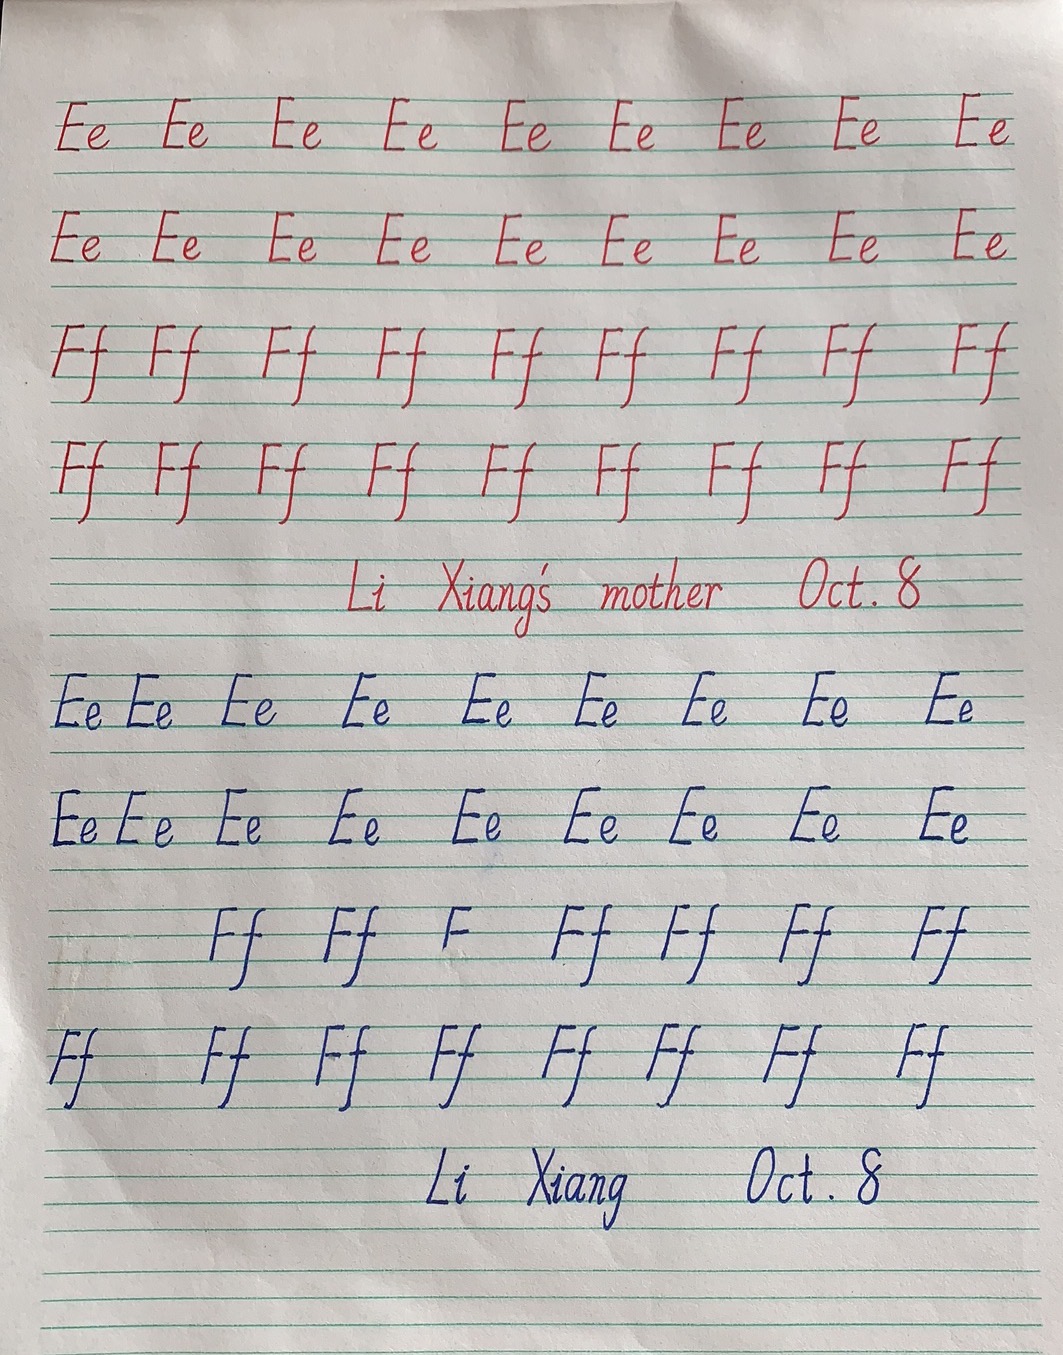 Ee Ee Ee Ee Ee Ee Ee Ee Ee
Ee Ee Ee Ee Ee Ee Ee Ee Ee
Ff Ff Ff Ff Ff Ff Ff Ff Ff
Ff Ff Ff Ff Ff Ff Ff Ff Ff
Li Xiang's mother Oct. 8
Ee Ee Ee Ee Ee Ee Ee Ee Ee
Ee Ee Ee Ee Ee Ee Ee Ee Ee
Ff Ff F Ff Ff Ff Ff
Ff Ff Ff Ff Ff Ff Ff Ff
Li Xiang Oct. 8